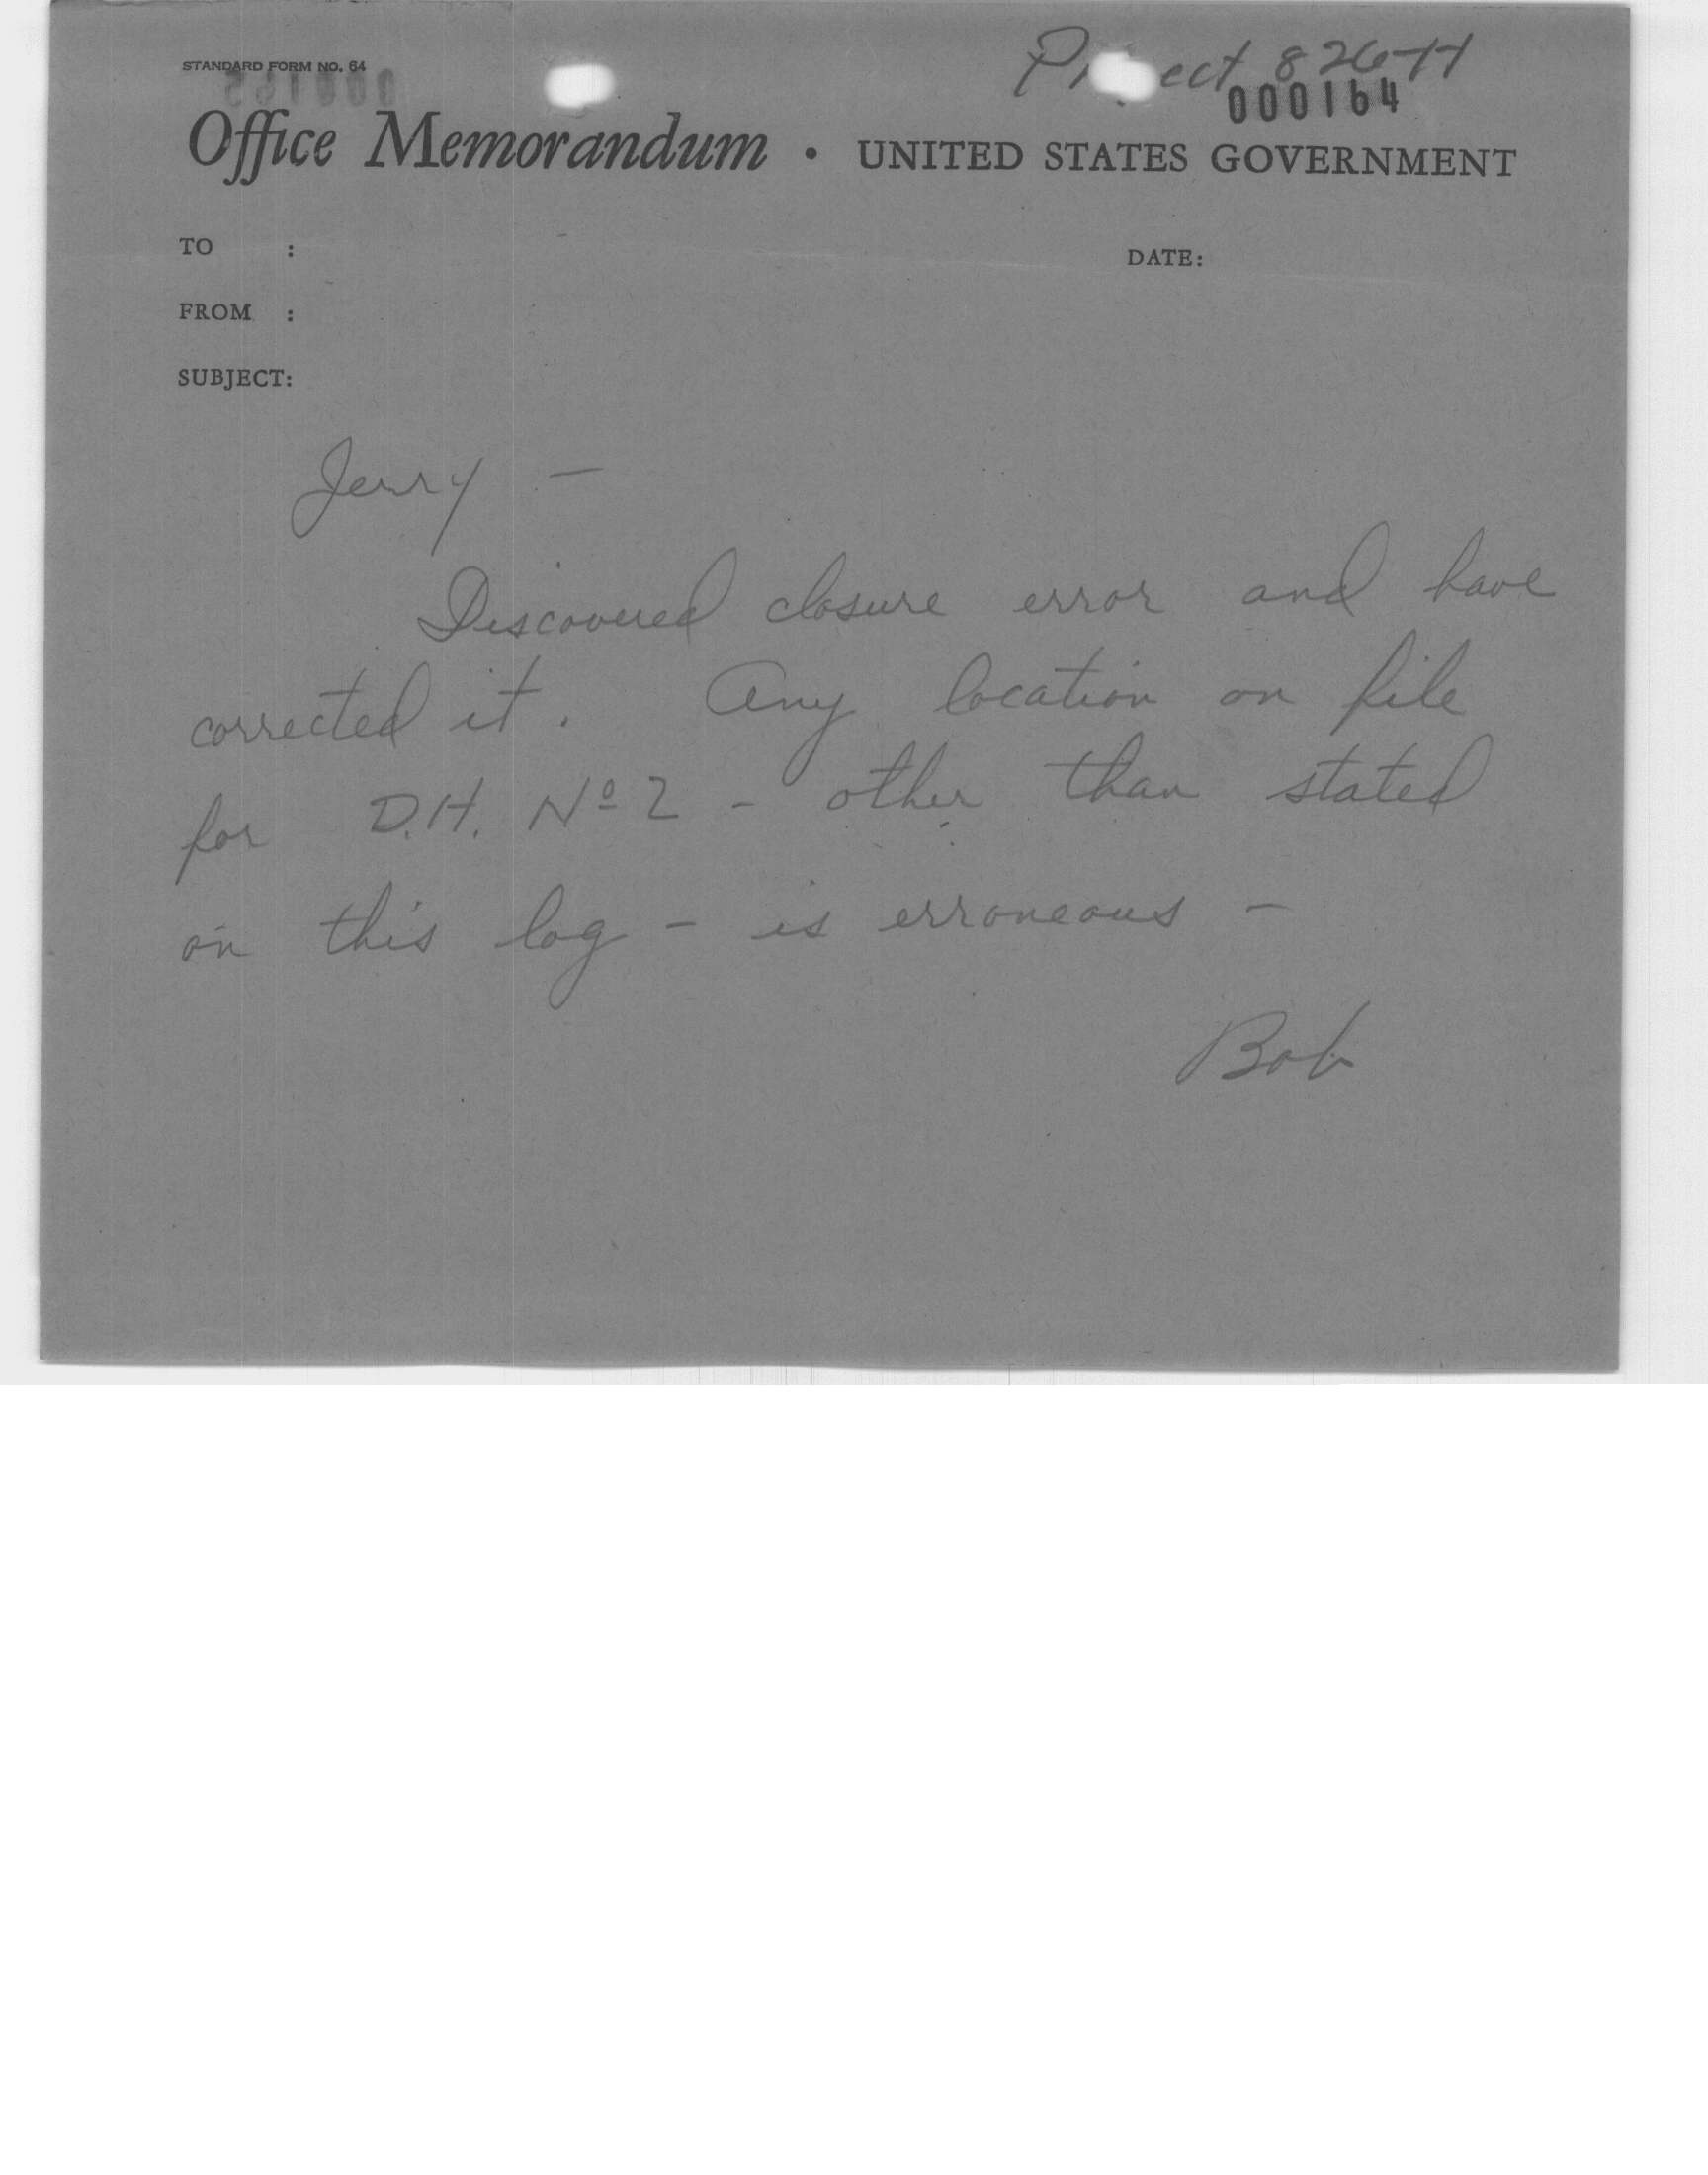 STANDARD FORM NO. 64
000164
Office Memorandum • UNITED STATES GOVERNMENT
TO :
DATE:
FROM :
SUBJECT:
Jerry —
Discovered closure error and have
corrected it. Any location on file
for D.H. Nº 2 - other than stated
on this log - is erroneous -
Bob